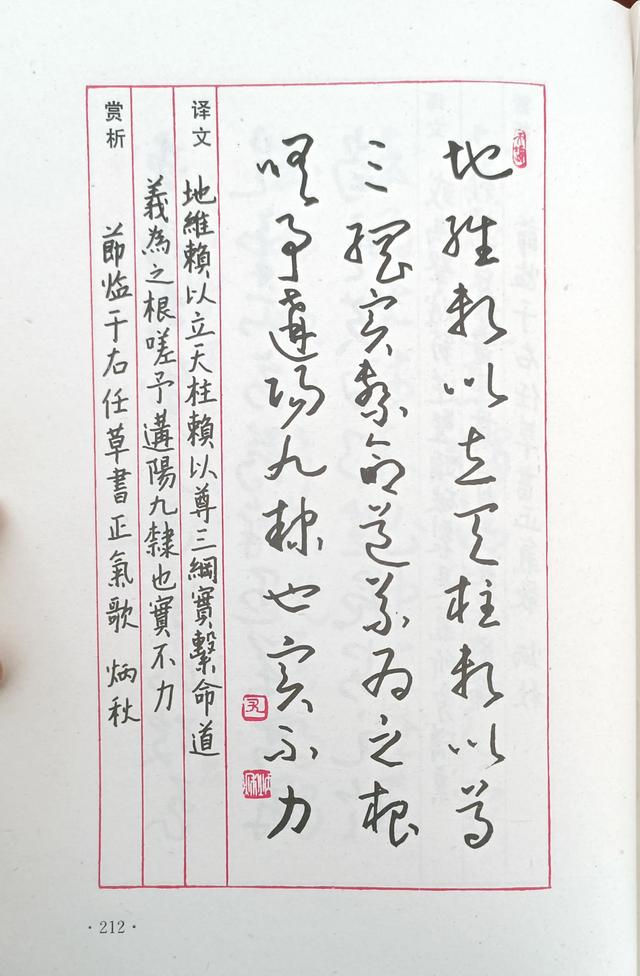 地維賴以立天柱賴以尊
三綱實繫命道義為之根
嗟予遘陽九隸也實不力
译文 地維賴以立天柱賴以尊三綱實繫命道
義為之根嗟予遘陽九隸也實不力
赏析 節临于右任草書正氣歌 炳秋
·212·